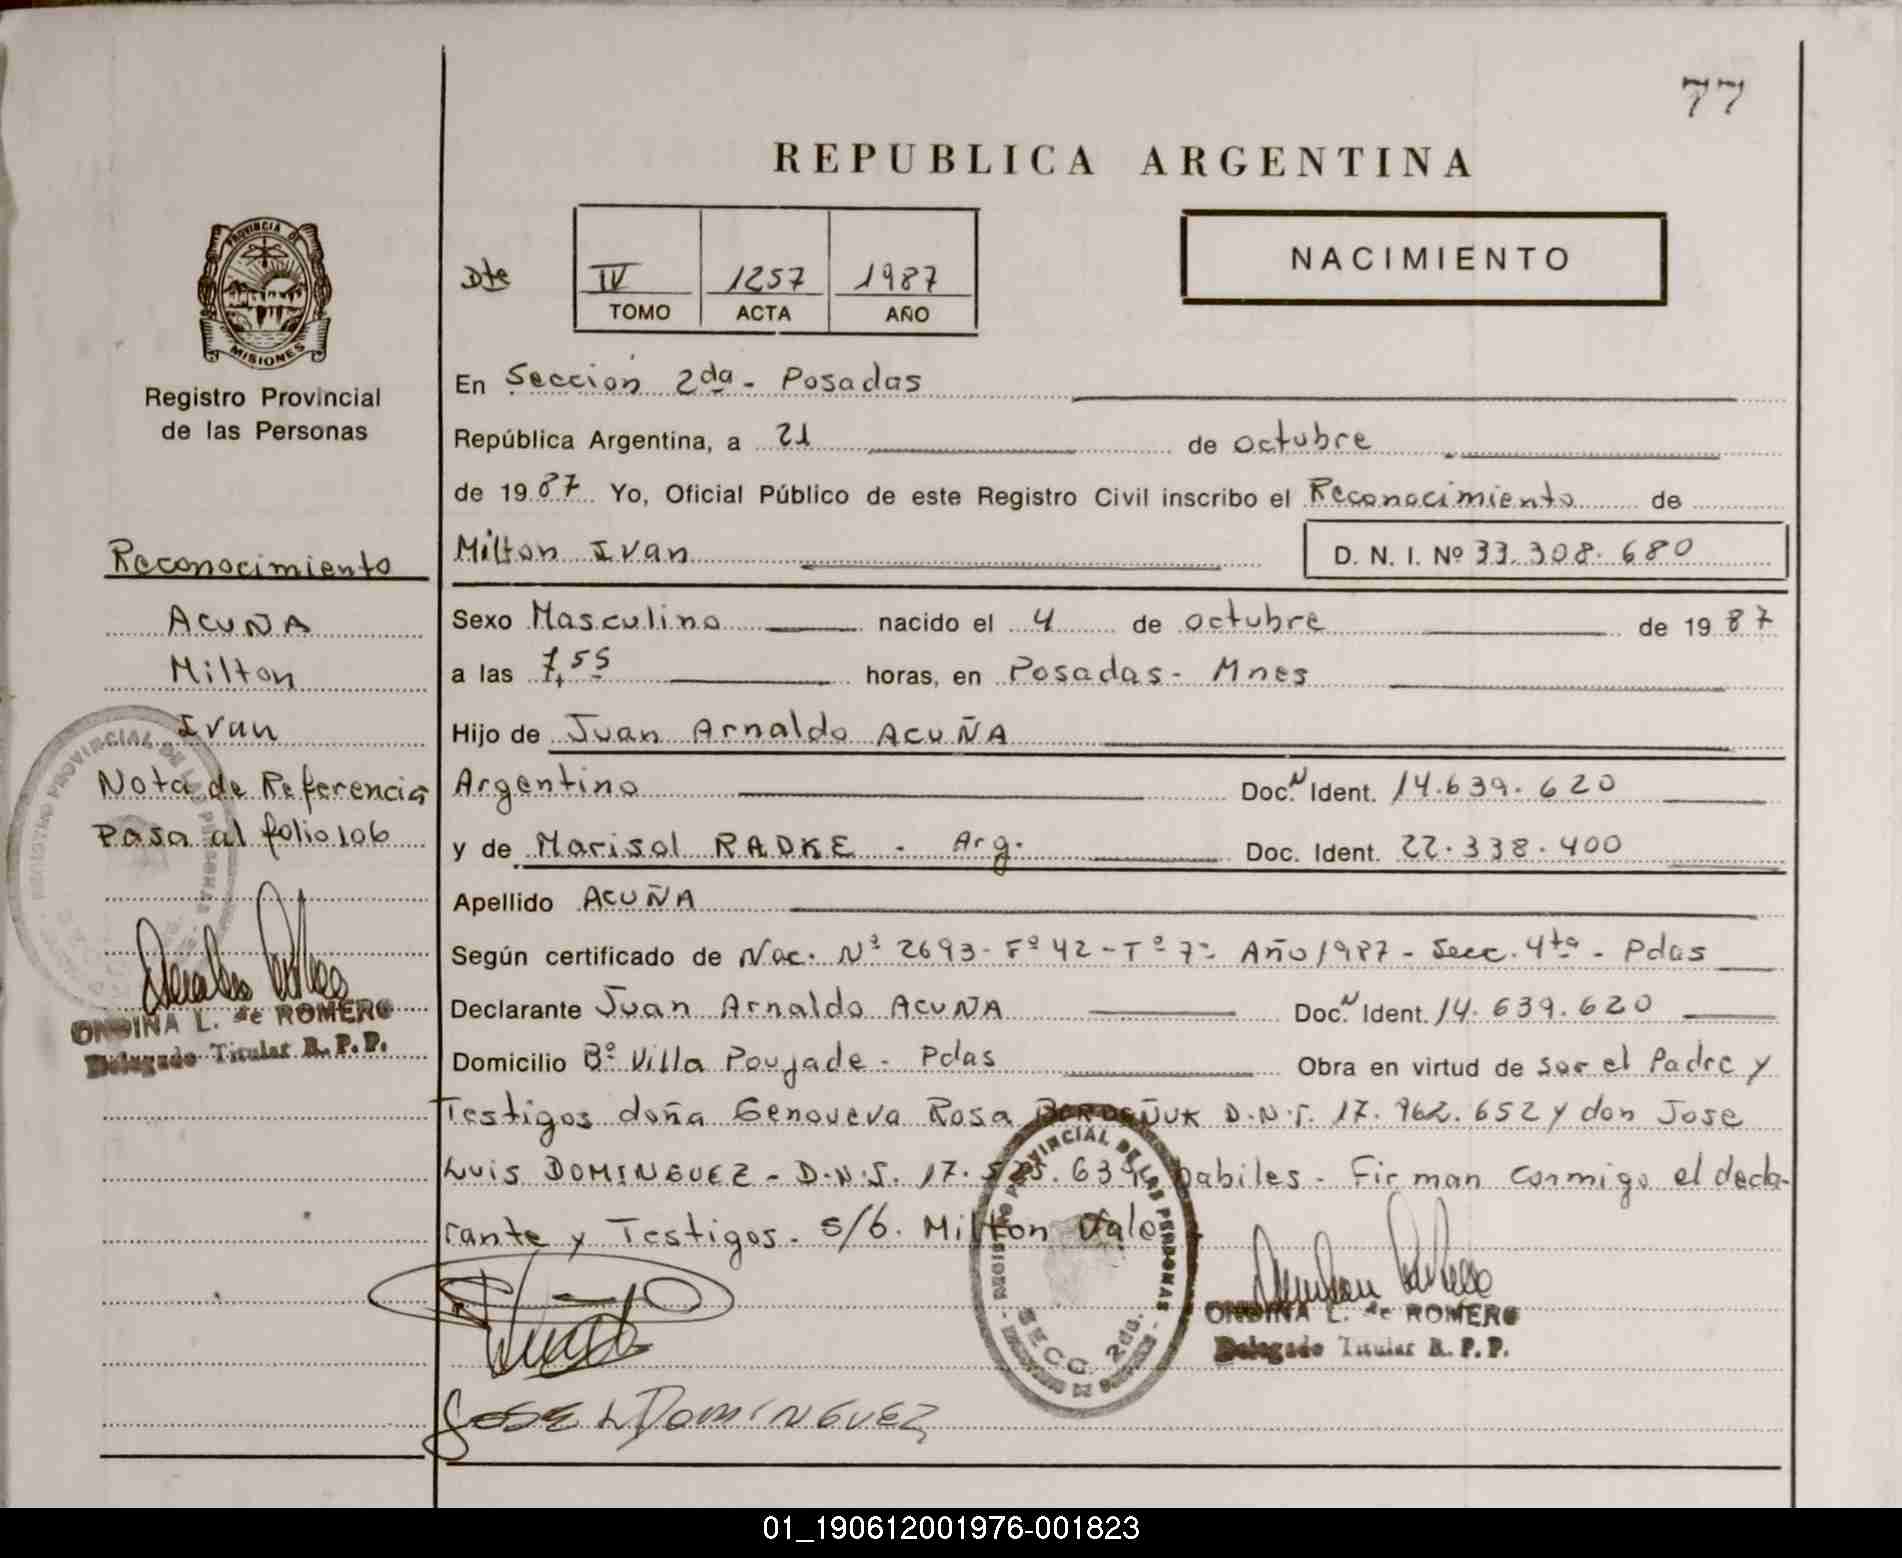 77
REPUBLICA ARGENTINA
PROVINCIA DE
MISIONES
Registro Provincial
de las Personas
Dte
IV 1257 1987
TOMO ACTA AÑO
NACIMIENTO
En Sección 2da - Posadas
República Argentina, a 21 de octubre
de 1987 Yo, Oficial Público de este Registro Civil inscribo el Reconocimiento de
Milton Ivan D. N. I. Nº 33.308.680
Sexo Masculino nacido el 4 de octubre de 1987
a las 7,55 horas, en Posadas - Mnes
Hijo de Juan Arnaldo ACUÑA
Argentino Doc. N Ident. 14.639.620
y de Marisol RADKE - Arg. Doc. Ident. 22.338.400
Apellido ACUÑA
Según certificado de Nac. Nº 2693 - Fº 42 - Tº 7º Año 1987 - Secc. 4ta - Pdas
Declarante Juan Arnaldo ACUÑA Doc. N Ident. 14.639.620
Domicilio Bº Villa Poujade - Pdas Obra en virtud de ser el Padre y
Testigos doña Genoveva Rosa D.N.I. 17.962.652 y don Jose
Luis DOMINGUEZ - D.N.I. 17. habiles - Firman conmigo el decla-
rante y Testigos - s/b. Milton Vale
JOSE L DOMINGUEZ
REGISTRO PROVINCIAL DE LAS PERSONAS
SECC. 2da.
ONDINA L. de ROMERO
Delegado Titular R. P. P.
Reconocimiento
ACUÑA
Milton
Ivan
Nota de Referencia
Pasa al folio 106
ONDINA L. de ROMERO
Delegado Titular R. P. P.
01_190612001976-001823